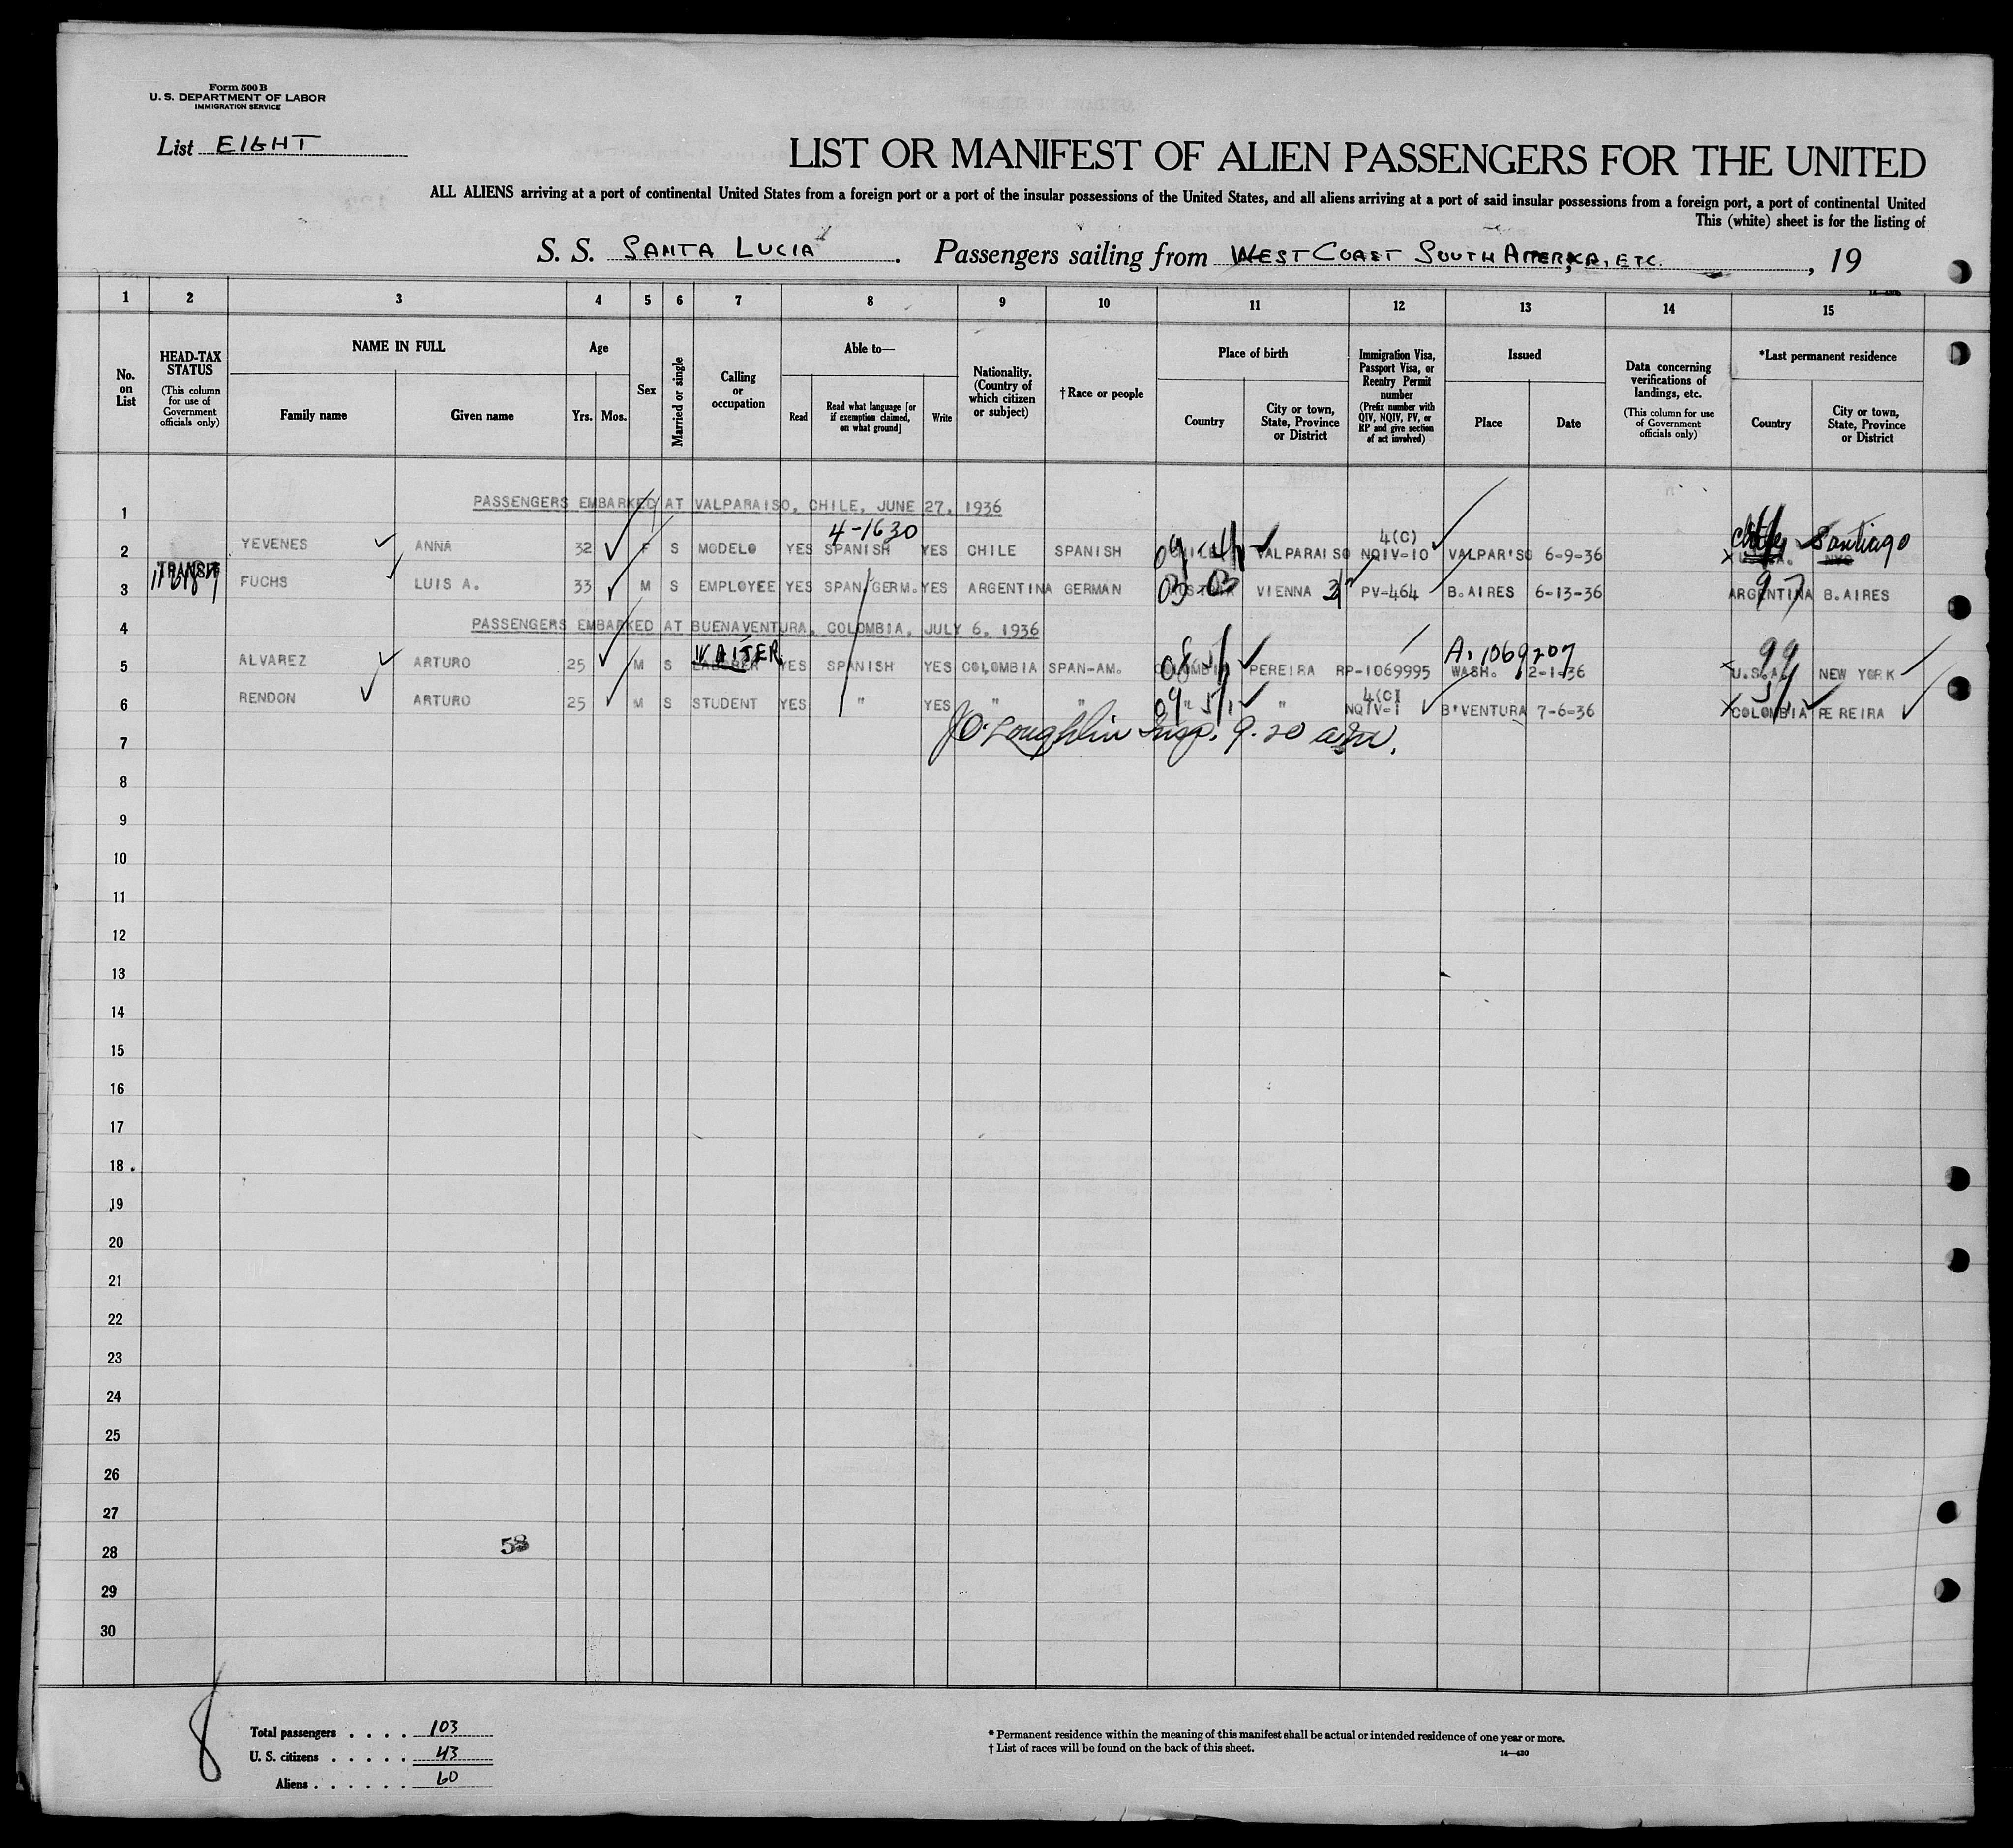 Form 500 B
U. S. DEPARTMENT OF LABOR
IMMIGRATION SERVICE
List EIGHT
LIST OR MANIFEST OF ALIEN PASSENGERS FOR THE UNITED
ALL ALIENS arriving at a port of continental United States from a foreign port or a port of the insular possessions of the United States, and all aliens arriving at a port of said insular possessions from a foreign port, a port of continental United
This (white) sheet is for the listing of
S. S. SANTA LUCIA. Passengers sailing from WEST COAST SOUTH AMERICA, ETC., 19
1 2 3 4 5 6 7 8 9 10 11 12 13 14 15
No. on List
HEAD-TAX STATUS (This column for use of Government officials only)
NAME IN FULL
Family name
Given name
Age
Yrs. Mos.
Sex
Married or single
Calling or occupation
Able to—
Read
Read what language [or if exemption claimed, on what ground]
Write
Nationality. (Country of which citizen or subject)
†Race or people
Place of birth
Country
City or town, State, Province or District
Immigration Visa, Passport Visa, or Reentry Permit number (Prefix number with QIV, NQIV, PV, or RP and give section of act involved)
Issued
Place
Date
Data concerning verifications of landings, etc. (This column for use of Government officials only)
*Last permanent residence
Country
City or town, State, Province or District
1 PASSENGERS EMBARKED AT VALPARAISO, CHILE, JUNE 27, 1936
4-1630 4(C) Chile Santiago
2 YEVENES ANNA 32 F S MODELO YES SPANISH YES CHILE SPANISH VALPARAISO NQIV-10 VALPAR'SO 6-9-36
TRANSIT
3 FUCHS LUIS A. 33 M S EMPLOYEE YES SPAN/GERM. YES ARGENTINA GERMAN VIENNA PV-464 B.AIRES 6-13-36 97 ARGENTINA B.AIRES
4 PASSENGERS EMBARKED AT BUENAVENTURA, COLOMBIA, JULY 6, 1936
WAITER A. 1069207 99
5 ALVAREZ ARTURO 25 M S LABORER YES SPANISH YES COLOMBIA SPAN-AM. COLOMBIA PEREIRA RP-1069995 WASH. 2-1-36 U.S.A. NEW YORK
4(C)
6 RENDON ARTURO 25 M S STUDENT YES " YES " " " " NQIV-1 B'VENTURA 7-6-36 COLOMBIA PEREIRA
J O'Loughlin Insp. 9.20 am.
7
8
9
10
11
12
13
14
15
16
17
18
19
20
21
22
23
24
25
26
27
28
29
30
58
8
Total passengers . . . . 103
U. S. citizens . . . . . 43
Aliens . . . . . . 60
* Permanent residence within the meaning of this manifest shall be actual or intended residence of one year or more.
† List of races will be found on the back of this sheet.
14—430